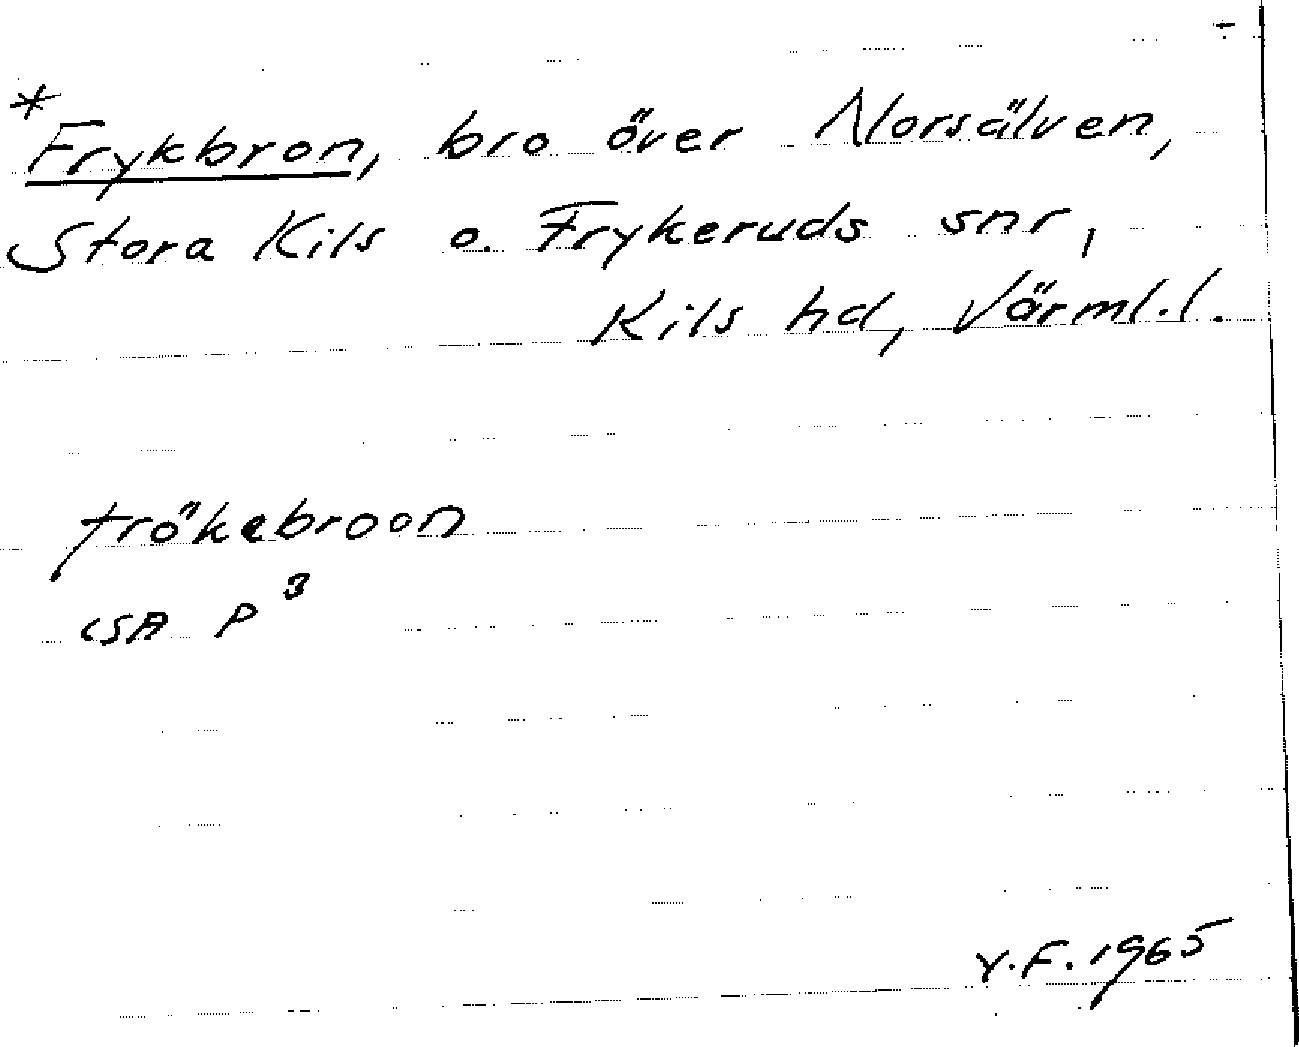 *
Frykbron, bro över Norsälven,
Stora Kils o. Frykeruds snr,
Kils hd, Värml. l.
frökebroon
CSA P 3
Y.F. 1965